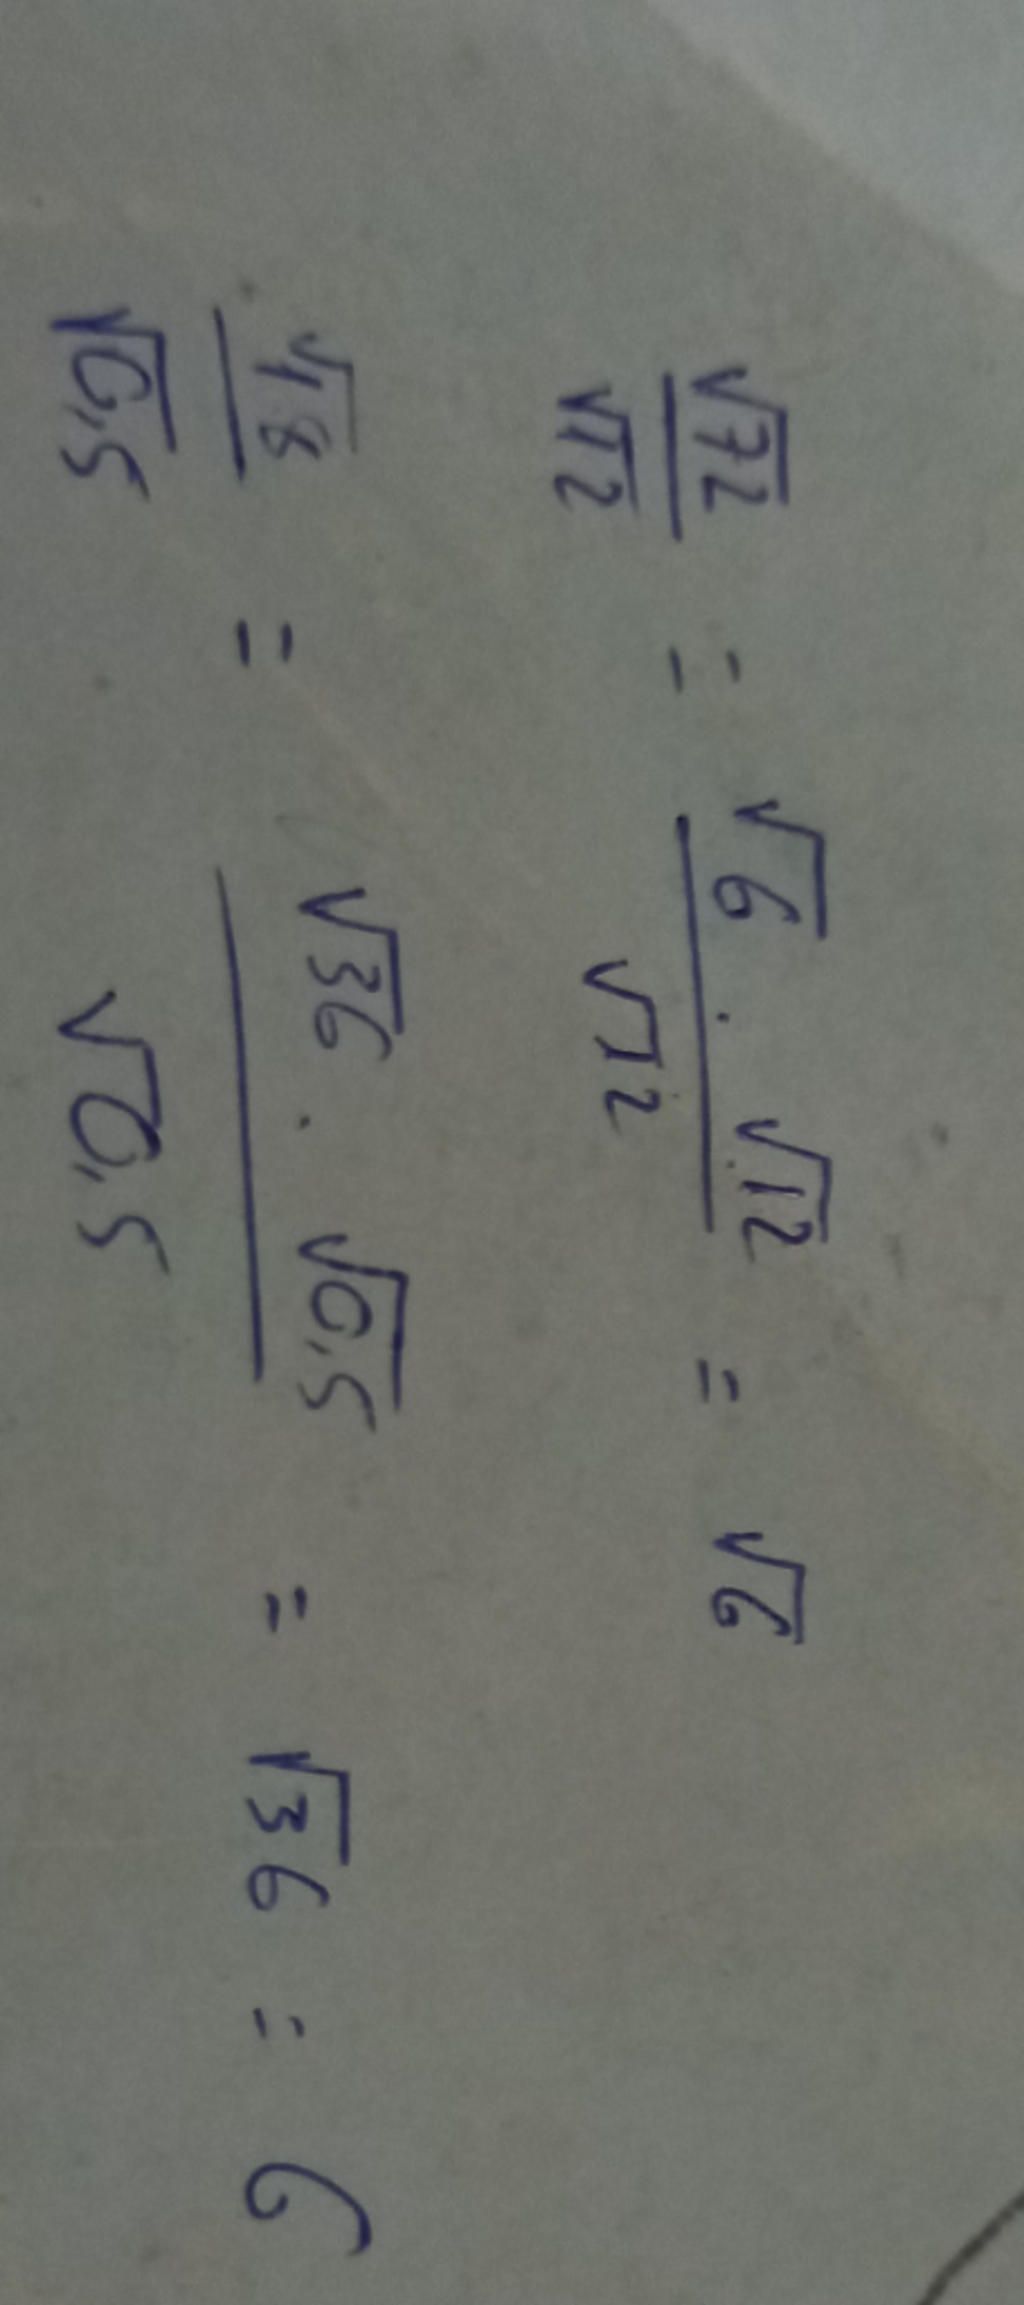 √72/√12 = √6 · √12/√12 = √6
√18/√0,5 = √36 · √0,5/√0,5 = √36 = 6